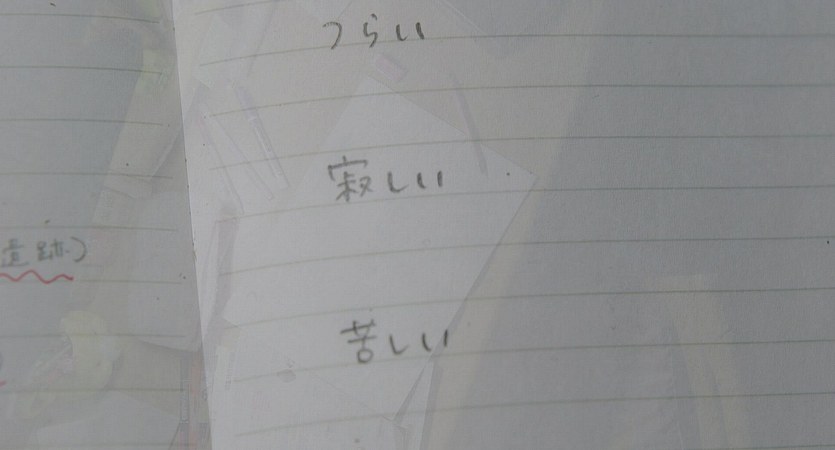 つらい
寂しい
苦しい
遺跡)